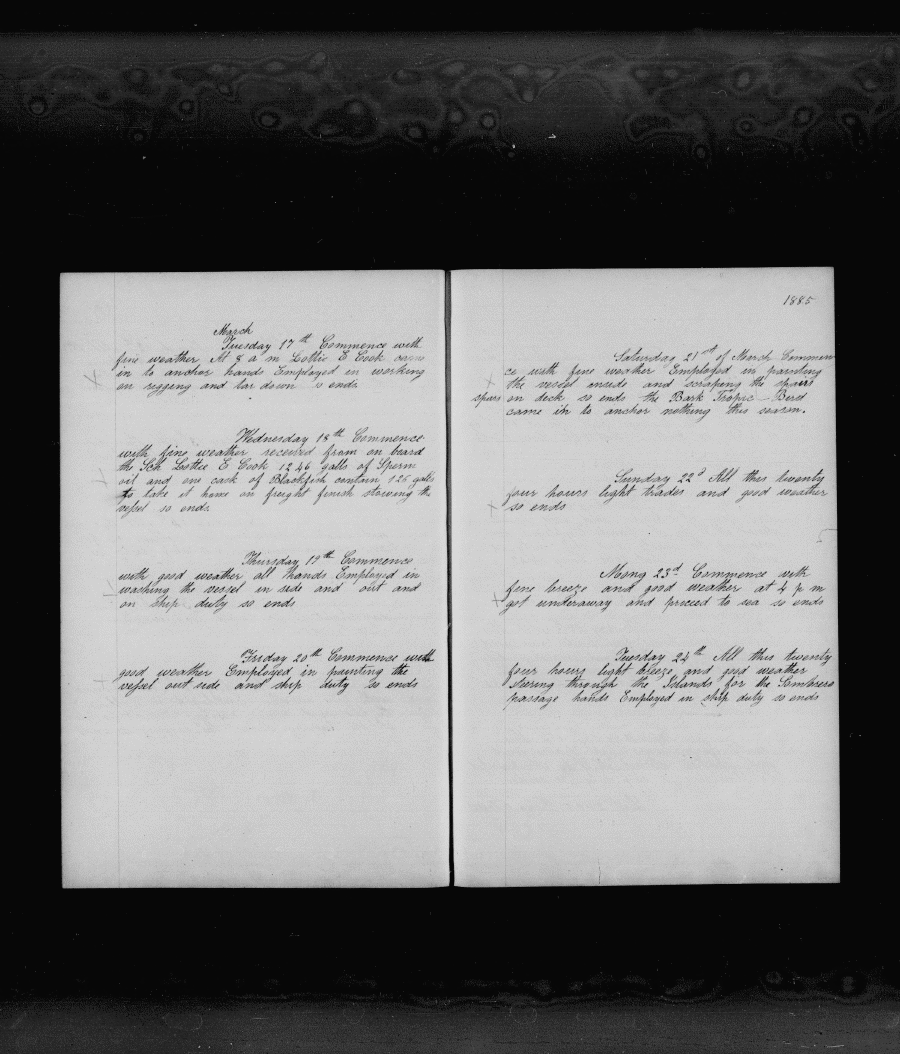 March
Tuesday 17th Commence with
fine weather At 8 a m Lottie E Cook came
in to anchor hands Employed in working
on rigging and tar down so ends
Wednesday 18th Commence
with fine weather received from on board
the Sch Lottie E Cook 1246 galls of Sperm
oil and one cask of Blackfish contain 126 galls
to take it home on freight finish stowing the
vessel so ends
Thursday 19th Commence
with good weather all hands Employed in
washing the vessel in side and out and
on ship duty so ends
Friday 20th Commence with
good weather Employed in painting the
vessel out side and ship duty so ends
1885
Saturday 21st of March Commen
ce with fine weather Employed in painting
the vessel inside and scraping the spars
spars on deck so ends the Bark Tropic-Bird
came in to anchor nothing this season.
Sunday 22d All this twenty
four hours light trades and good weather
so ends
Mong 23d Commence with
fine breeze and good weather at 4 p m
got underaway and proceed to sea so ends
Tuesday 24th All this twenty
four hours light breeze and good weather
steering through the Islands for the Sombrero
passage hands Employed in ship duty so ends